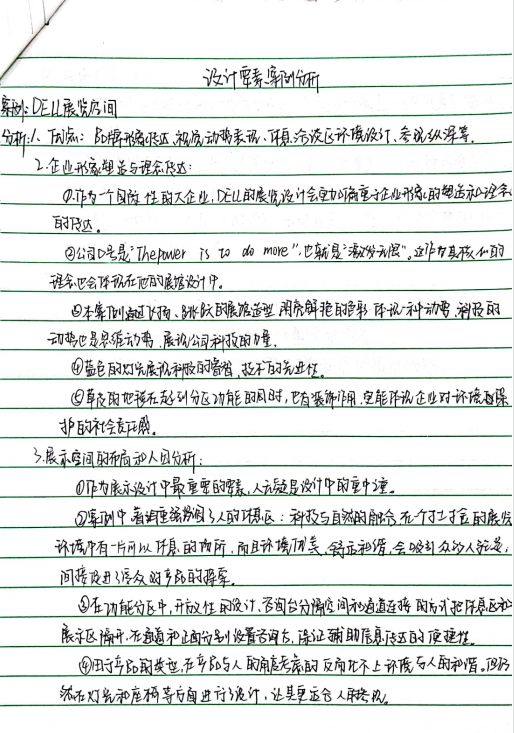 设计要素案例分析
案例:DELL展览空间
分析:1、下阅览:品牌形象传达、视觉动势表现、休息洽谈区环境设计、参观纵深等。
2.企业形象塑造与理念传达:
①作为一个国际性的大企业,DELL的展览设计会更加偏重于企业形象的塑造和理念
的传达。
②公司口号是"The power is to do more",也就是"激发无限"。这作为其核心的
理念也会体现在他的展馆设计中。
③本案例通过、跳跃的展馆造型 明亮鲜艳的色彩 体现一种动势,科技的
动势也是思维动势,展现公司科技的力量。
④蓝色的灯光展现科技的睿智,技术的先进性。
⑤草皮的地毯在起到分区功能的同时,也有装饰作用,更能体现企业对环境保
护的社会责任感。
3.展示空间的布局和人因分析:
①作为展示设计中最重要的要素,人无疑是设计中的重中之重。
②案例中着重强调了人的休息区:科技与自然的融合 在一个打的展览
环境中有一片可以休息的场所,而且环境优美、舒适和谐,会吸引众多人驻足,
间接促进了受众的产品的探索。
③在功能分区中,开放性的设计、咨询台分隔空间和通道连接的方式把休息区和
展示区隔开,在通道和正面分别设置咨询台,保证辅助信息传达的便捷性。
④由于产品的类型,在产品与人的角度考虑的反而比不上环境与人的和谐。但仍
然在灯光和座椅等方面进行了设计,让其更适合人。